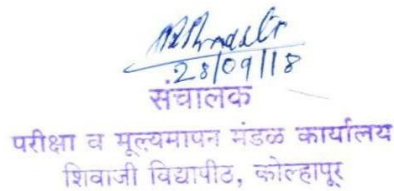 28/09/18
संचालक
परीक्षा व मूल्यमापन मंडळ कार्यालय
शिवाजी विद्यापीठ, कोल्हापूर